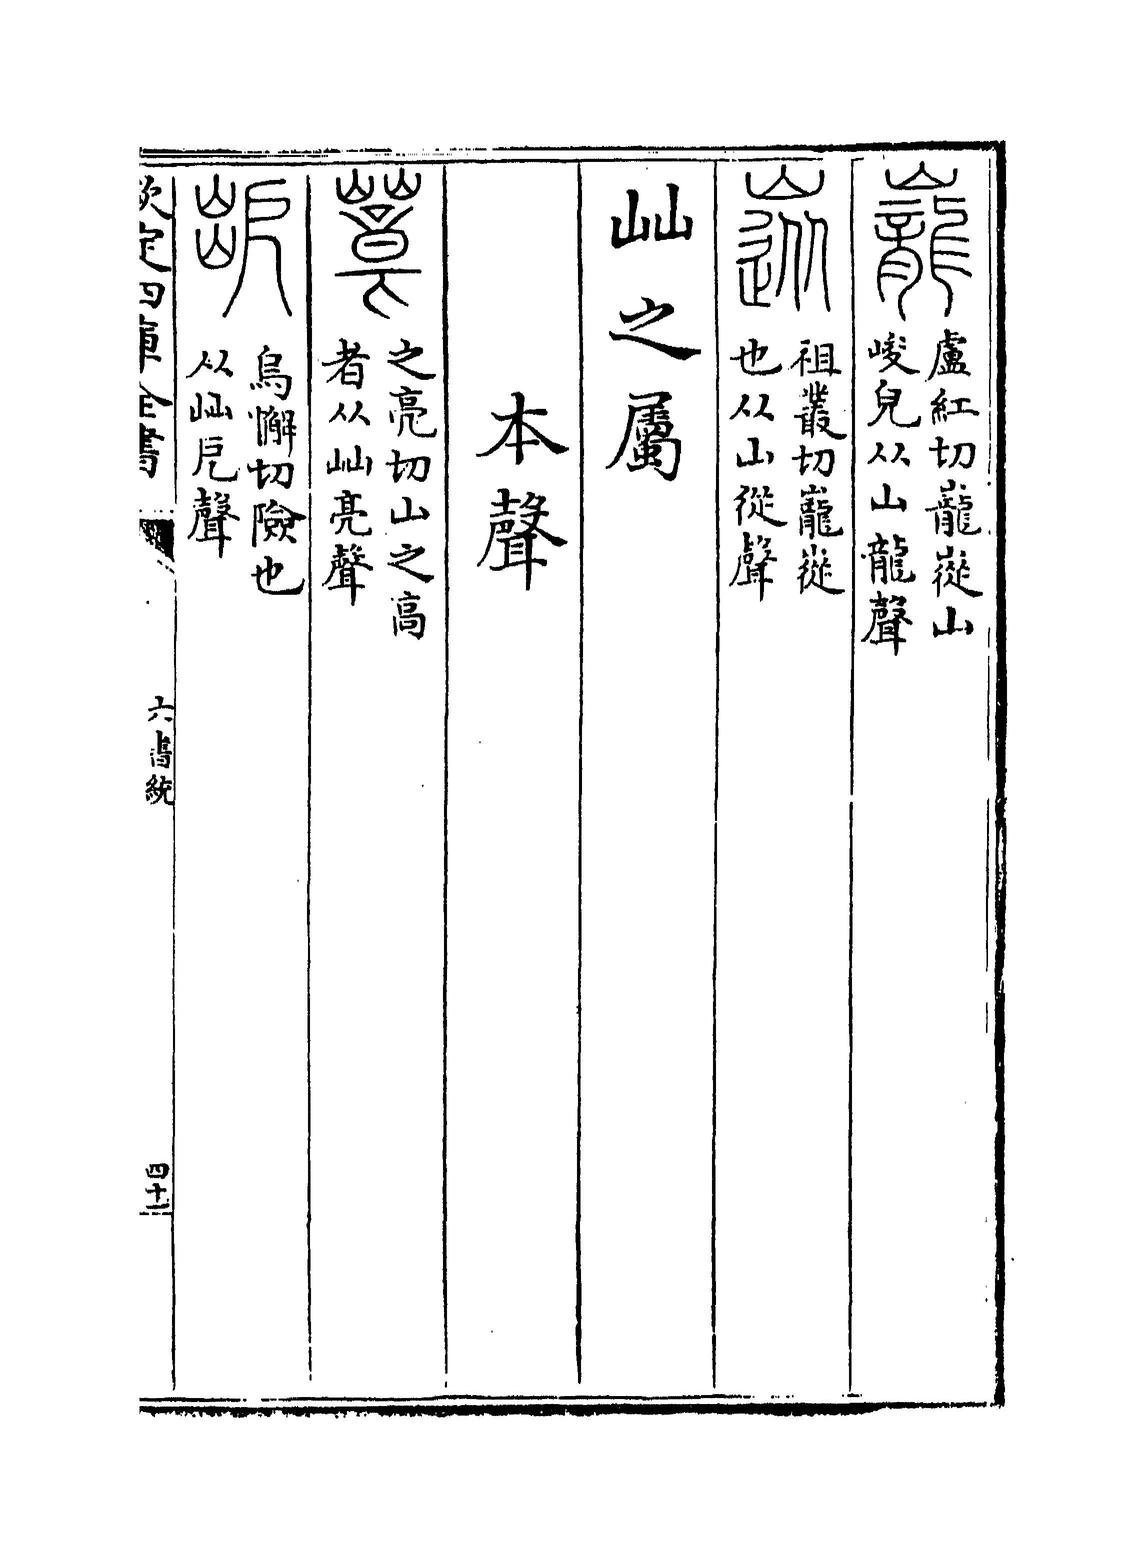 巃盧紅切巃嵸山
峻皃从山龍聲
嵸祖叢切巃嵸
也从山從聲
屾之屬
本聲
之亮切山之高
者从屾亮聲
烏懈切險也
从屾𠂢聲
欽定四庫全書
六書統
四十一